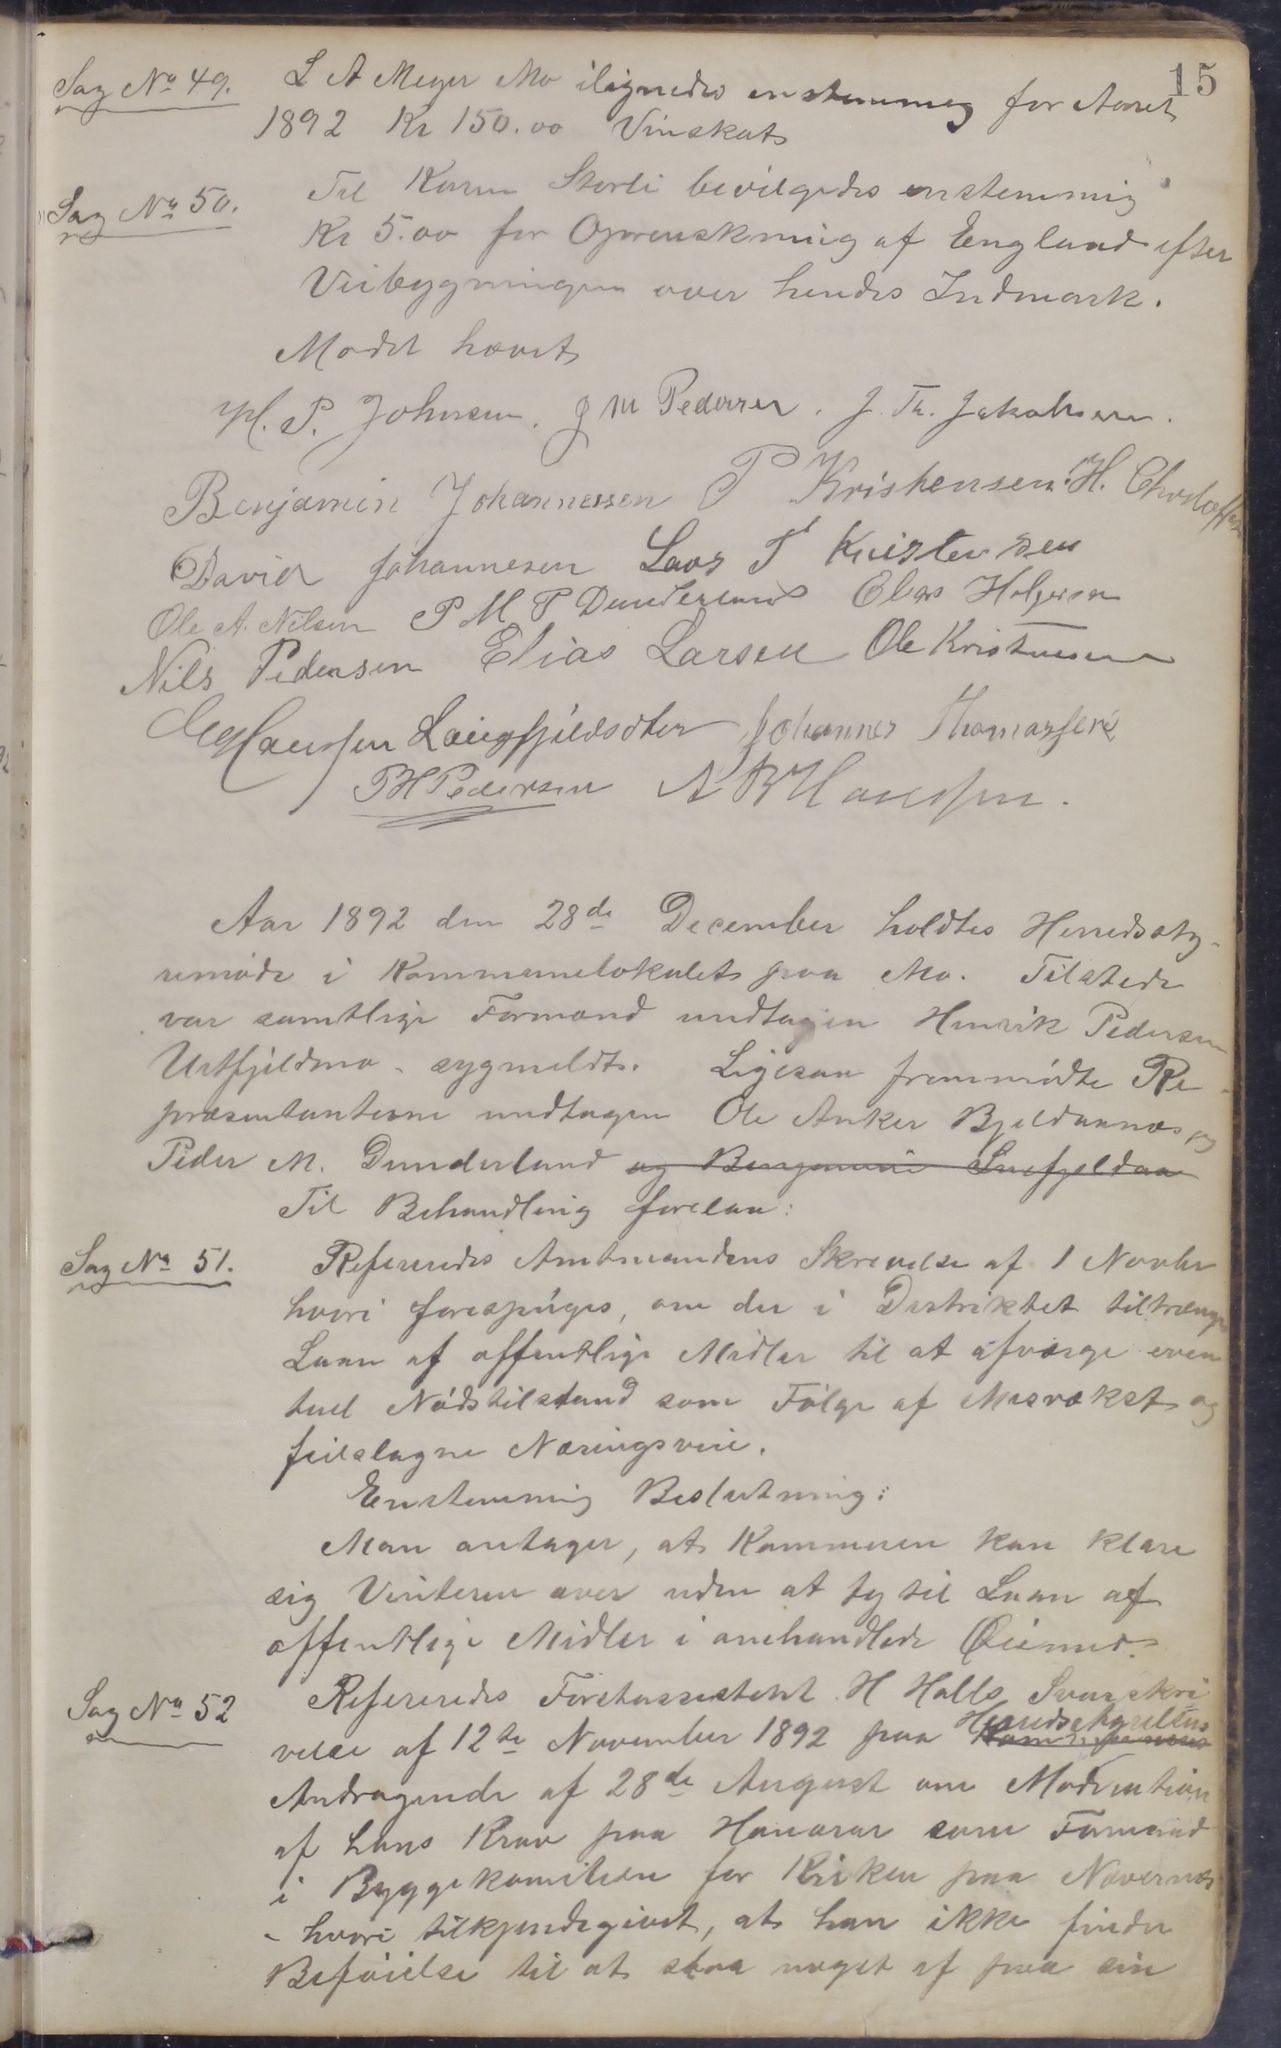 15
Sag No 49. L A Meyer Mo ilignedes enstemmig for Aaret
1892 Kr 150.00 Vinskat
Sag No 50. Til Karen Storli bevilgedes enstemmig
Kr 5.00 for Oprenskning af England efter
Veibygningen over hendes Indmark.
Mødet hævet
H. P. Johnsen. J M Pedersen. J. Th. Jakobsen.
Benjamin Johannessen P Kristensen H.
David Johannesen Lars T Kristensen
Ole A. Nilsen P M P Dunderland Elias Holgersen
Nils Pedersen Elias Larsen Ole Kristensen
Langfjeldsdter Johannes Thomassen
PH Pedersen A B Hansen.
Aar 1892 den 28de December holdtes Herredssty-
remøde i Kommunelokalet paa Mo. Tilstede
var samtlige Formænd undtagen Henrik Pedersen
Urtfjeldmo - sygmeldt. Ligesaa fremmødte Re-
præsentanterne undtagen Ole Anker Bjeldaanæs og
Peder M. Dunderland og Benjamin
Til Behandling forelaa:
Sag No 51. Refereredes Amtmandens Skrivelse af 1 Novbr
hvori forespørges, om der i Distriktet tiltrænges
Laan af offentlige Midler til at afværge even
tuel Nødstilstand som Følge af Misvækst og
feilslagne Næringsveie.
Enstemmig Beslutning:
Man antager, at Kommunen kan klare
sig Vinteren over uden at ty til Laan af
offentlige Midler i omhandlede Øiemed.
Sag No 52 Refereredes Forstassistent H Halls Svarskri
velse af 12te November 1892 paa Herredsstyrelsens
Andragende af 28de August om Moderation
af hans Krav paa Honorar som Formand
i Byggekomiteen for Kirken paa Nævernes
- hvori tilkjendegivet, at han ikke finder
Beføielse til at slaa noget af paa sin